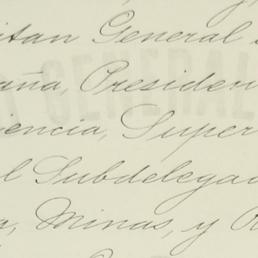 itan General
aña, Presiden
iencia, Super
l Subdelegad
a, Minas, y R
GENERAL